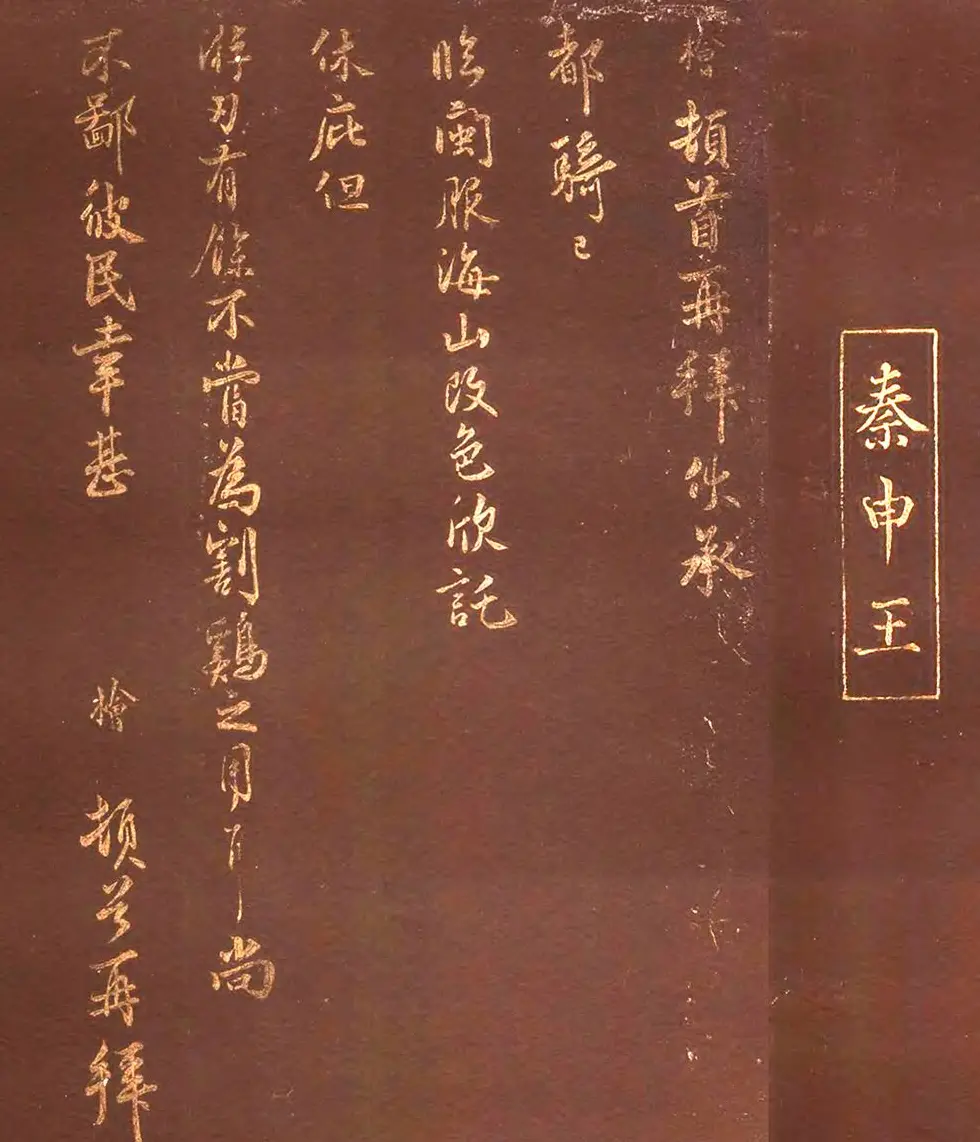 秦申王
檜頓首再拜伏承
都騎已
臨閩服海山改色欣託
休庇但
游刃有餘不當為割鷄之用耳尚
不鄙彼民幸甚 檜 頓首再拜